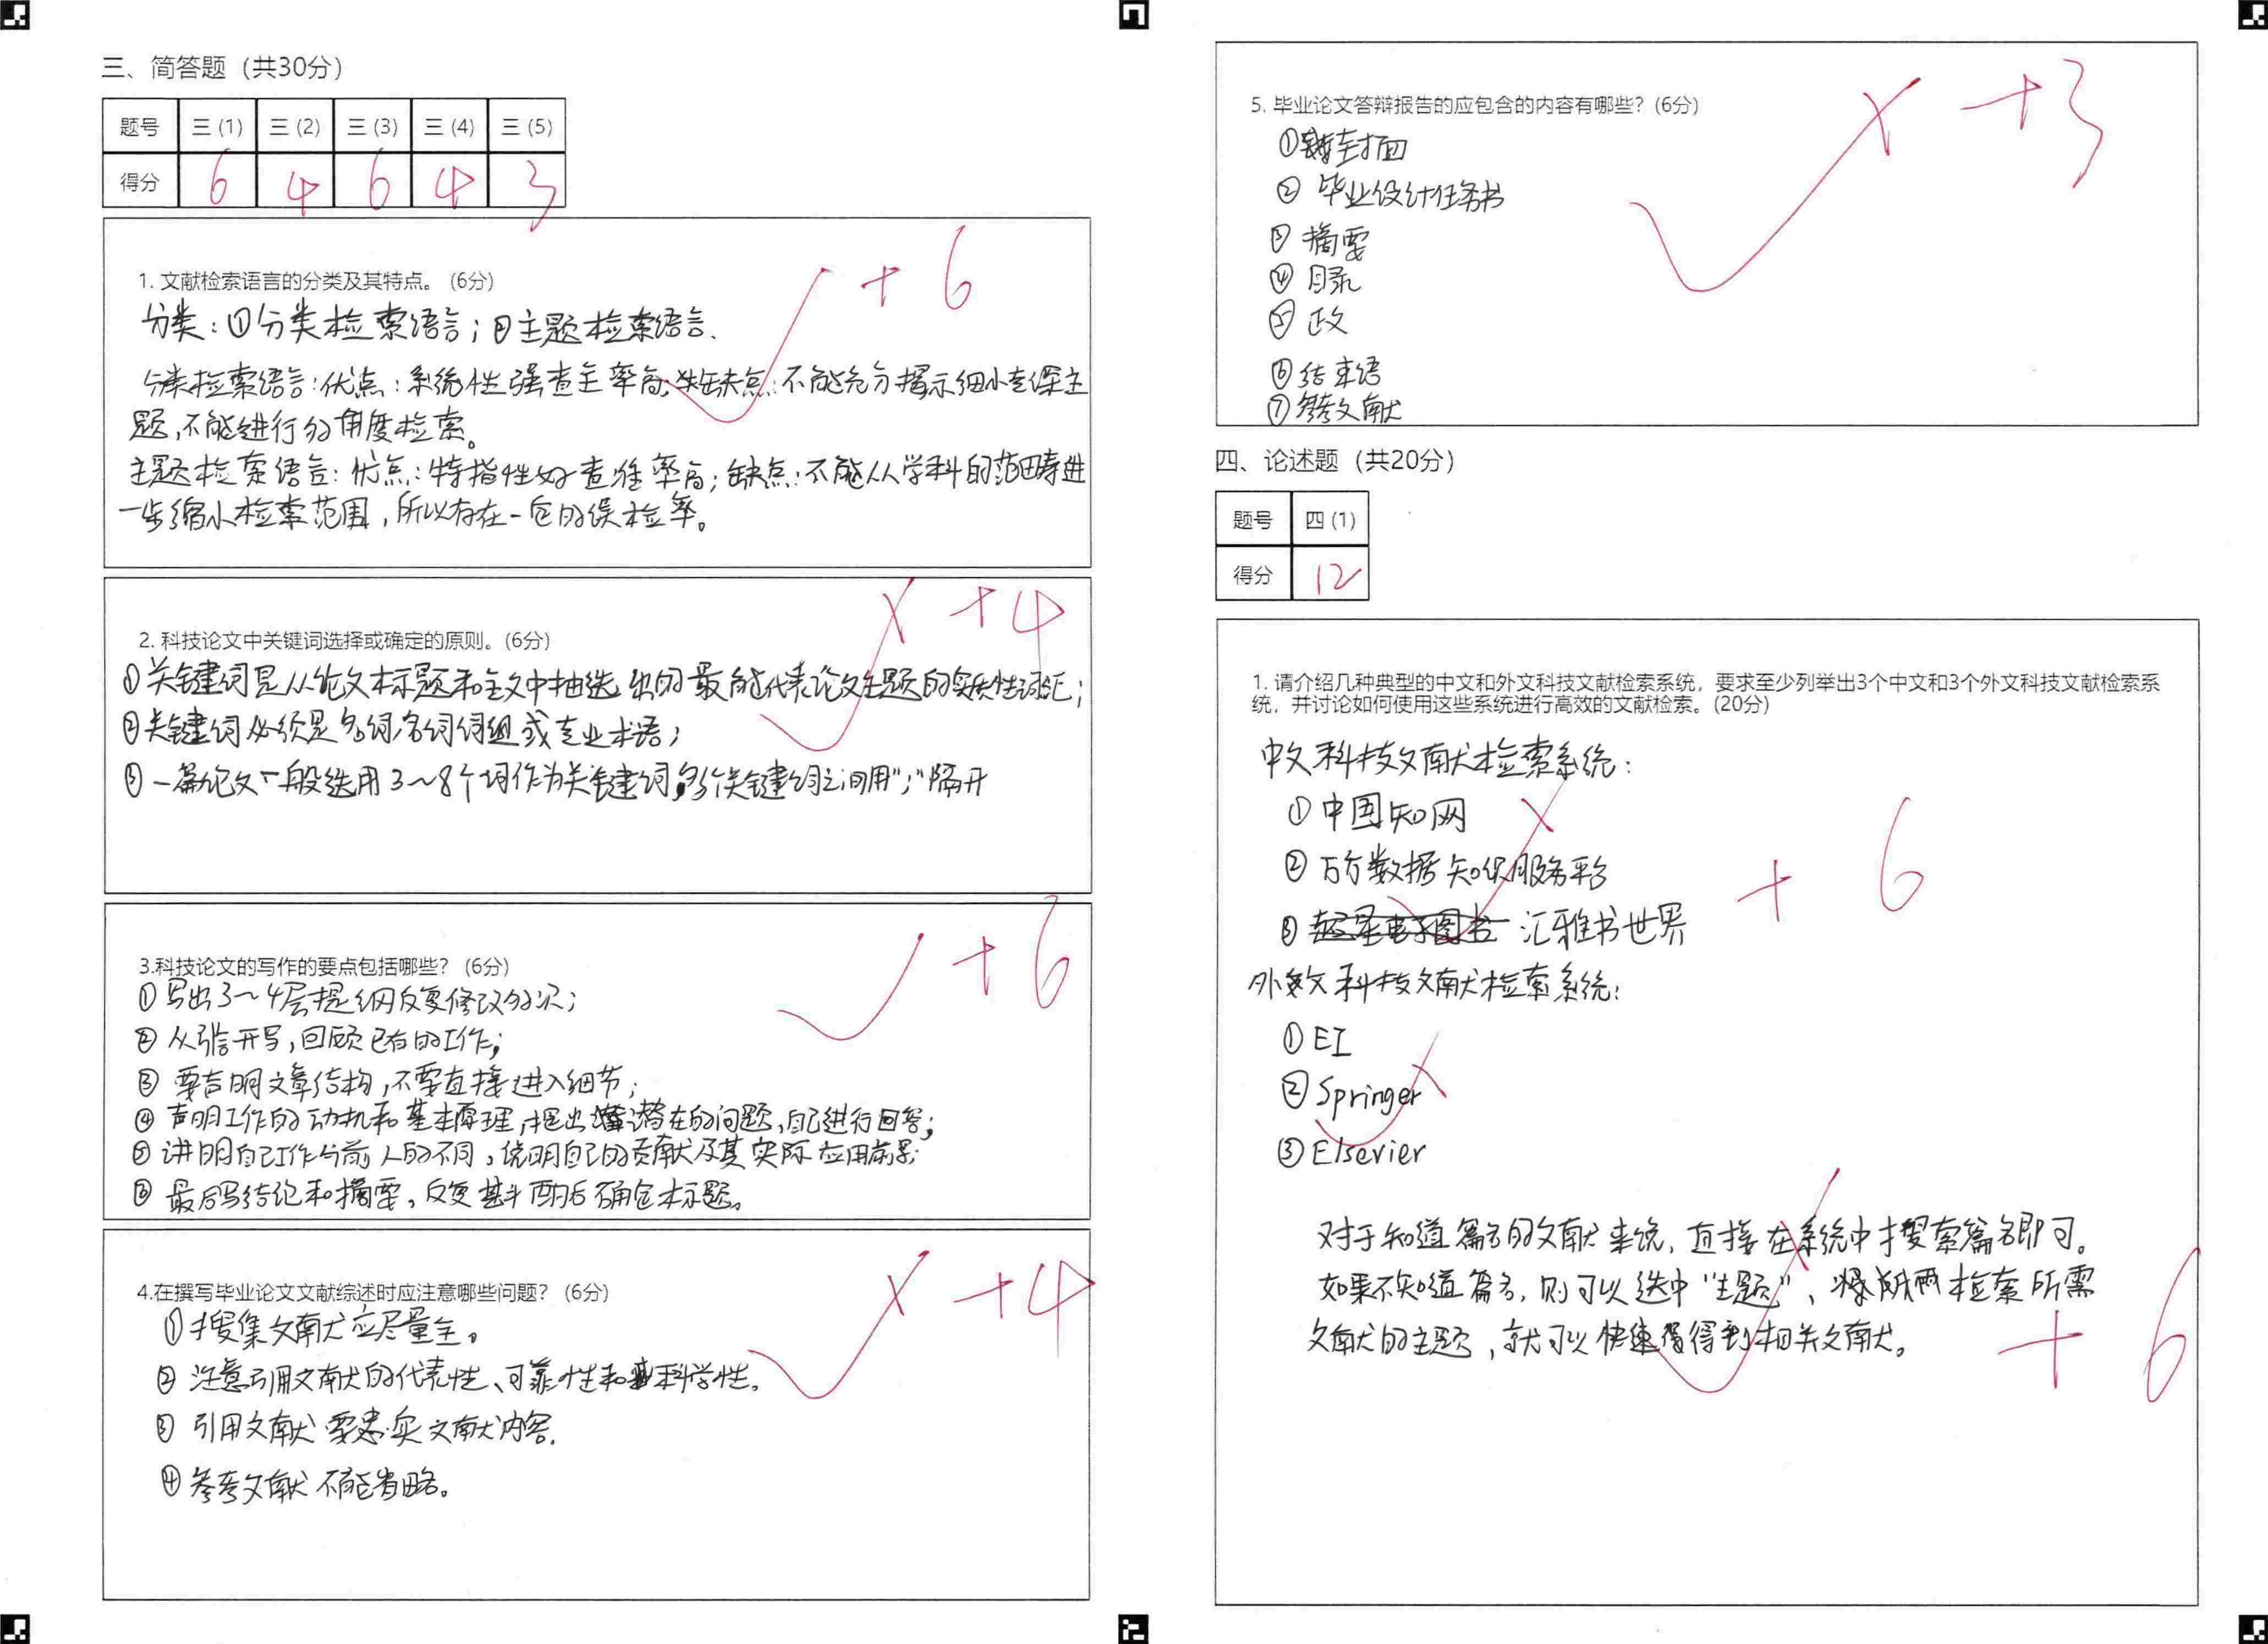 三、简答题（共30分）
题号 三 (1) 三 (2) 三 (3) 三 (4) 三 (5)
得分 6 4 6 4 3
1. 文献检索语言的分类及其特点。 (6分)
+ 6
分类：①分类检索语言；②主题检索语言、
分类检索语言：优点：系统性强查全率高；缺点：不能充分揭示细小专深主
题，不能进行多角度检索。
主题检索语言：优点：特指性好查准率高；缺点：不能从学科的范畴进
一步缩小检索范围，所以存在一定的误检率。
+4
2. 科技论文中关键词选择或确定的原则。(6分)
①关键词是从论文标题和全文中抽选出的最能代表论文主题的实质性词汇；
②关键词必须是名词、名词词组或专业术语；
③一篇论文一般选用3～8个词作为关键词，多个关键词之间用“；”隔开
+6
3.科技论文的写作的要点包括哪些？ (6分)
①写出3～4层提纲反复修改多次；
②从引言开写，回顾已有的工作；
③要言明文章结构，不要直接进入细节；
④声明工作的动机和基本原理，提出潜在的问题，自己进行回答；
⑤讲明自己工作与前人的不同，说明自己的贡献及其实际应用前景
⑥最后写结论和摘要，反复斟酌后确定标题。
+4
4.在撰写毕业论文文献综述时应注意哪些问题？ (6分)
①搜集文献应尽量全。
②注意引用文献的代表性、可靠性和科学性。
③引用文献要忠实文献内容.
④参考文献不能省略。
+3
5. 毕业论文答辩报告的应包含的内容有哪些？(6分)
①封面
②毕业设计任务书
③摘要
④目录
⑤正文
⑥结束语
⑦参考文献
四、论述题（共20分）
题号 四 (1)
得分 12
1. 请介绍几种典型的中文和外文科技文献检索系统，要求至少列举出3个中文和3个外文科技文献检索系
统，并讨论如何使用这些系统进行高效的文献检索。(20分)
中文科技文献检索系统：
①中国知网
②万方数据知识服务平台
+ 6
③超星电子图书 汇雅书世界
外文科技文献检索系统：
①EI
②Springer
③Elsevier
对于知道篇名的文献来说，直接在系统中搜索篇名即可。
如果不知道篇名，则可以选中“主题”、检索所需
文献的主题，就可以快速得到相关文献。
+ 6